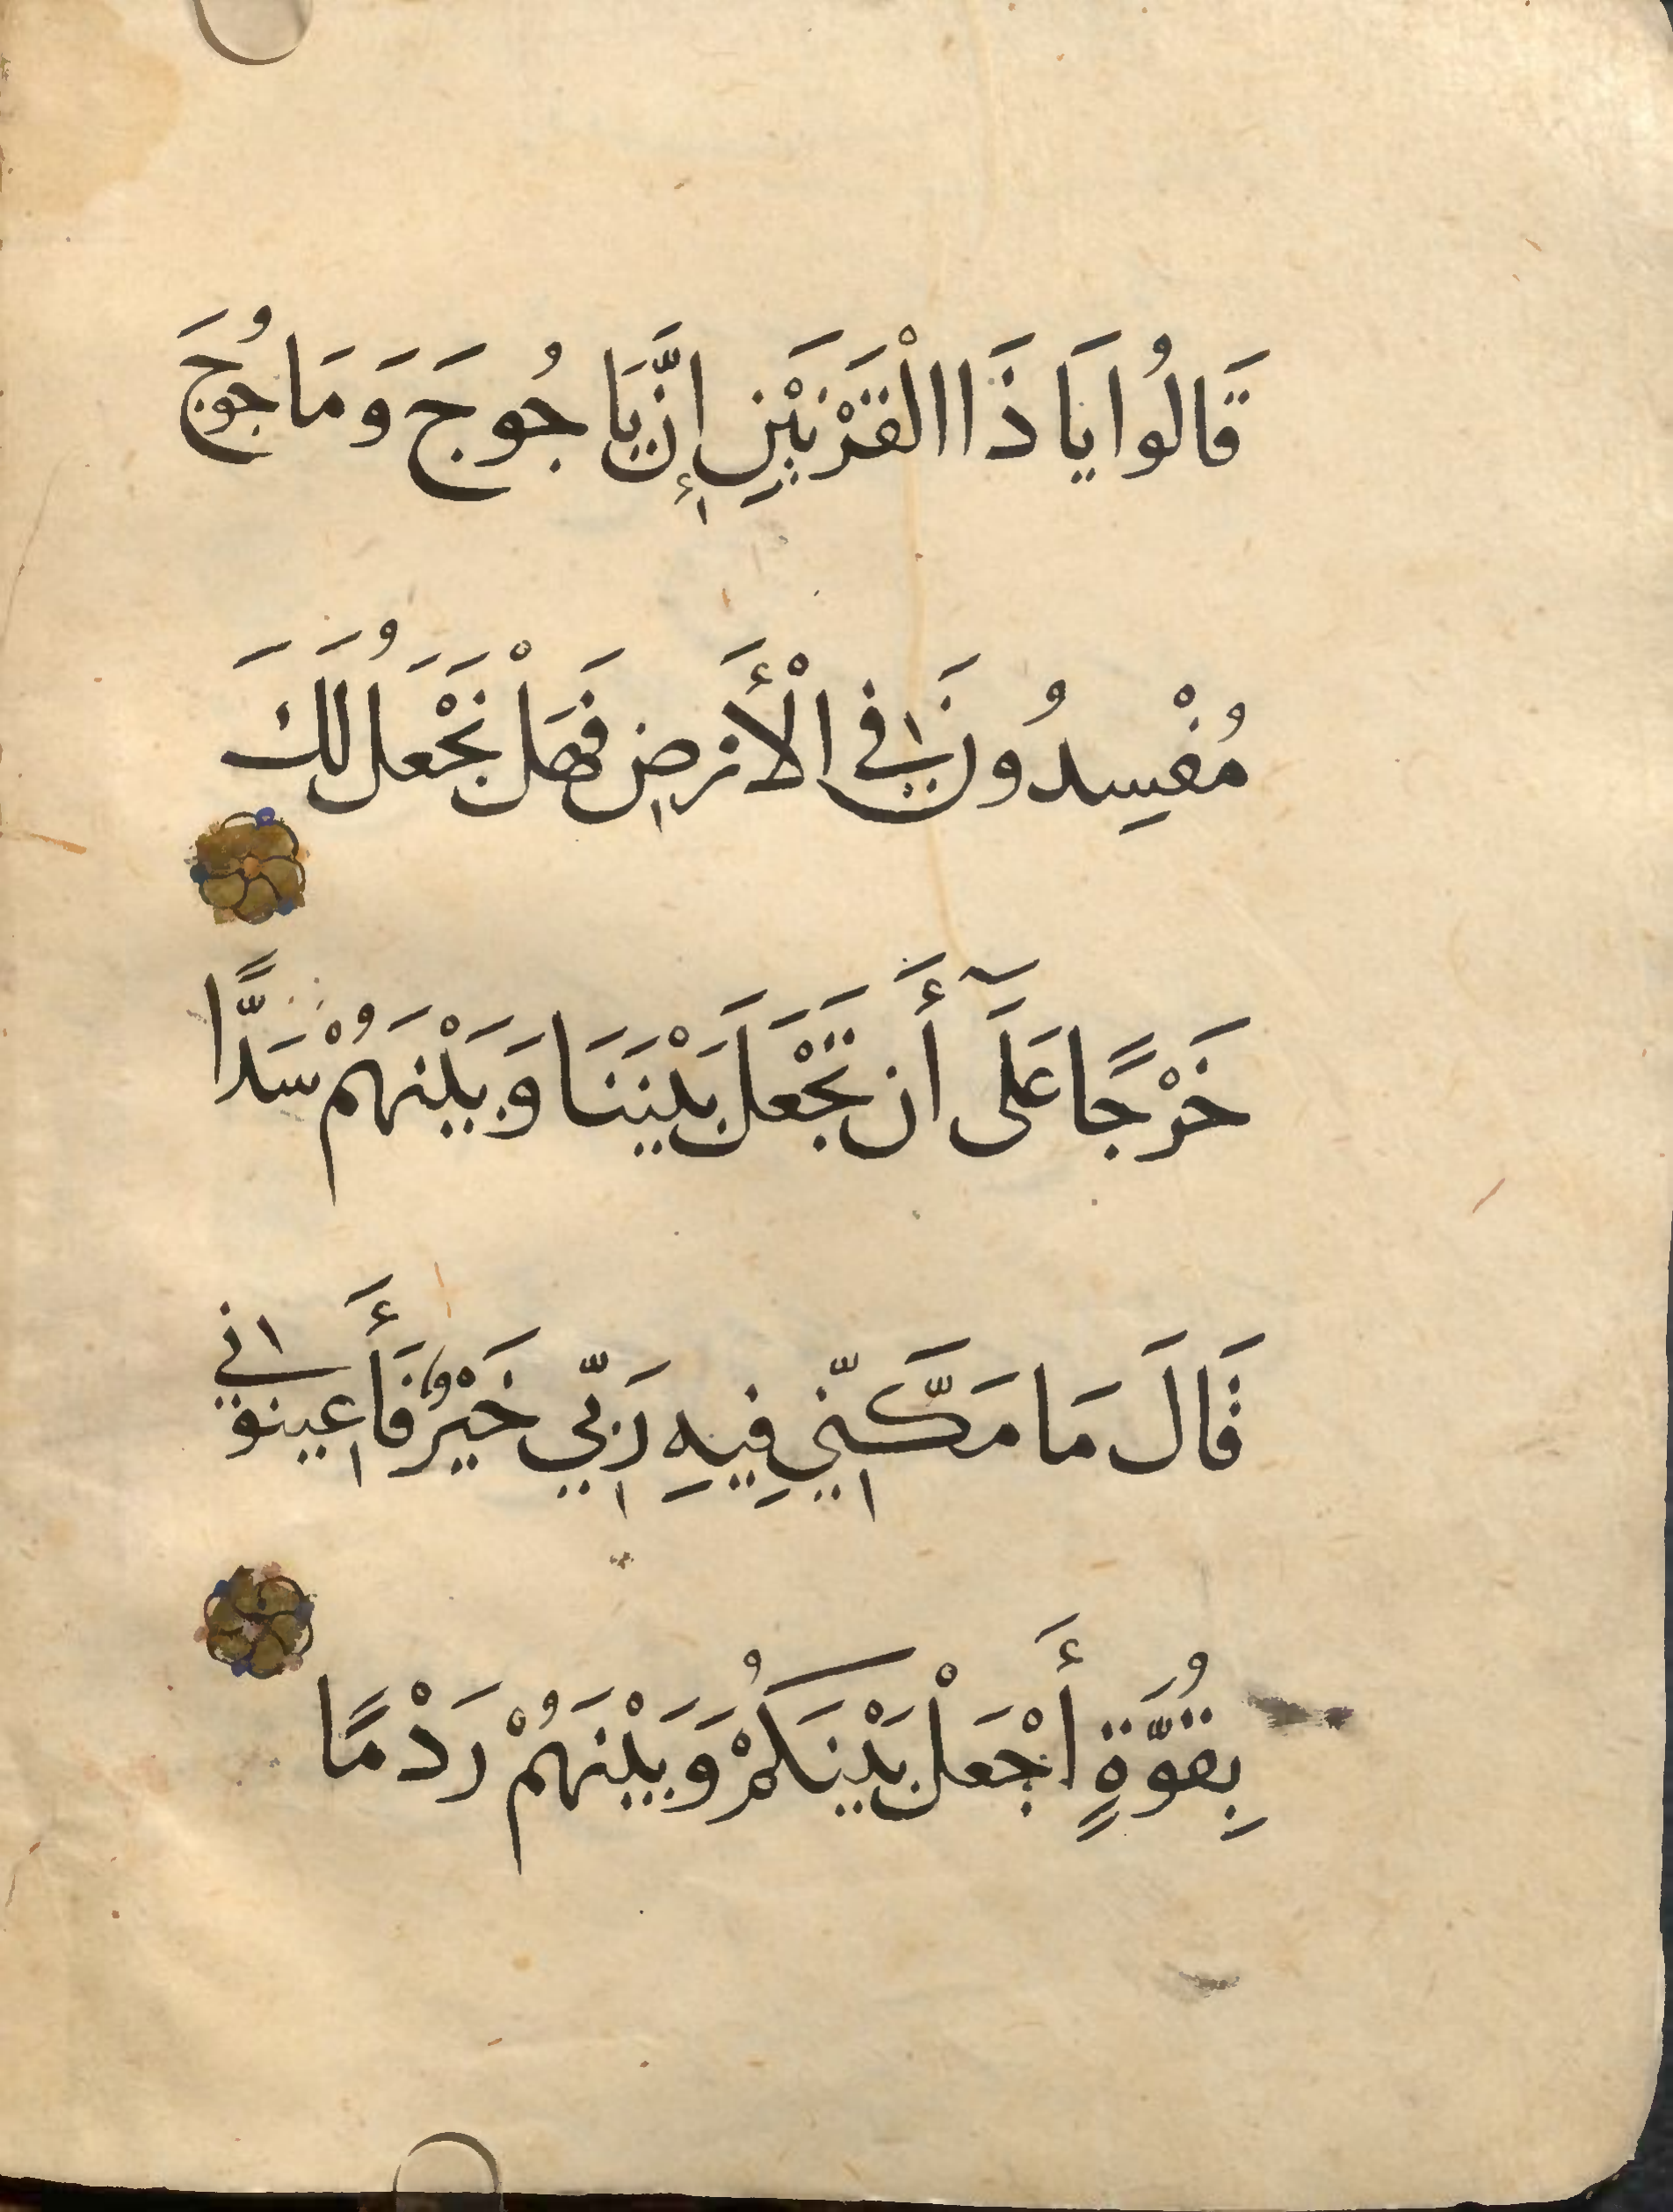 قَالُوا يَا ذَا الْقَرْنَيْنِ إِنَّ يَاجُوجَ وَمَاجُوجَ
مُفْسِدُونَ فِي الْأَرْضِ فَهَلْ نَجْعَلُ لَكَ
خَرْجًا عَلَىٰٓ أَن تَجْعَلَ بَيْنَنَا وَبَيْنَهُمْ سَدًّا
قَالَ مَا مَكَّنِّي فِيهِ رَبِّي خَيْرٌ فَأَعِينُونِي
بِقُوَّةٍ أَجْعَلْ بَيْنَكُمْ وَبَيْنَهُمْ رَدْمًا